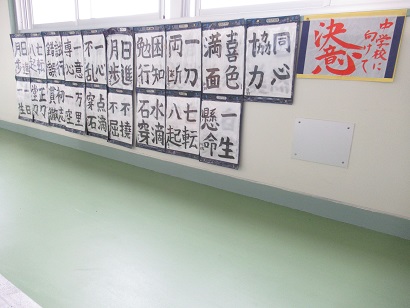 中学校に
向けて
決意
同心
協力
喜色
満面
一刀
両断
困知
勉行
日進
月歩
一心
不乱
一意
専心
試行
錯誤
七転
八起
一生
懸命
七転
八起
水滴
石穿
不撓
不屈
点滴
穿石
万里